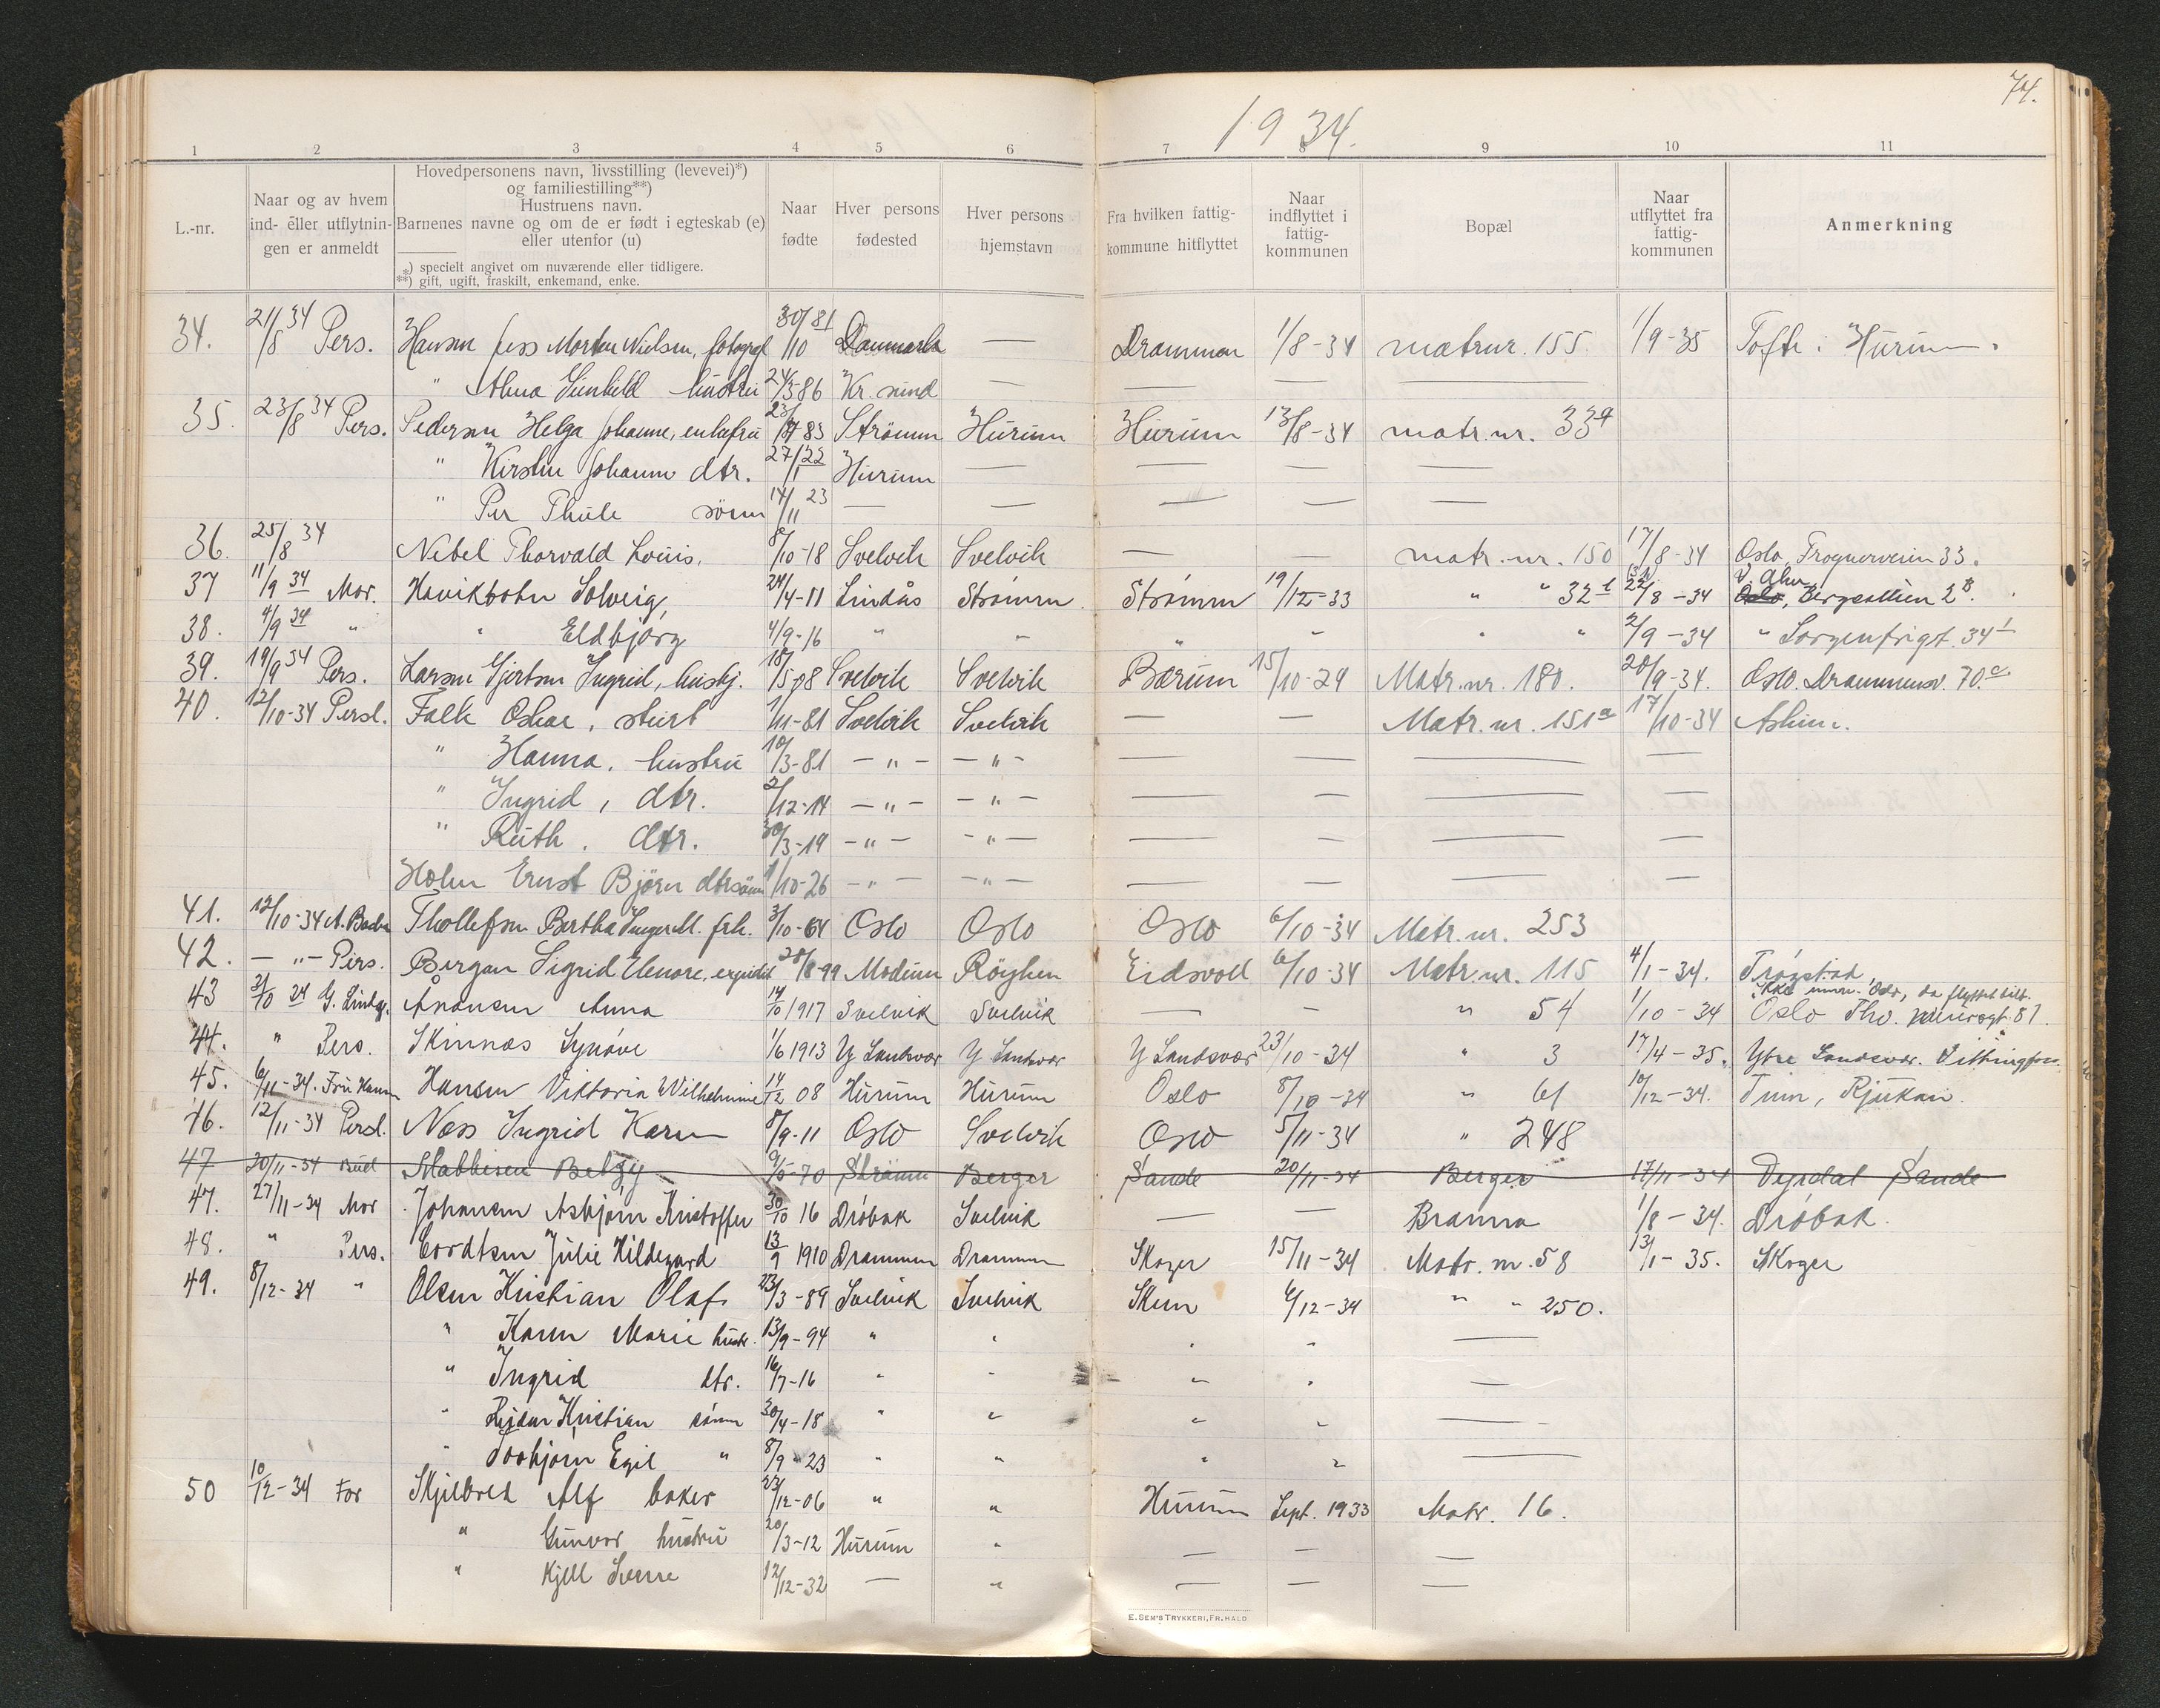 74.
1934.
1 2 3 4 5 6 7 8 9 10 11
L.-nr.
Naar og av hvem ind- eller utflytnin- gen er anmeldt
Hovedpersonens navn, livsstilling (levevei)*)
og familiestilling**)
Hustruens navn.
Barnenes navne og om de er født i egteskab (e)
eller utenfor (u)
*) specielt angivet om nuværende eller tidligere.
**) gift, ugift, fraskilt, enkemand, enke.
Naar fødte
Hver persons fødested
Hver persons hjemstavn
Fra hvilken fattig- kommune hitflyttet
Naar indflyttet i fattig- kommunen
Bopæl
Naar utflyttet fra fattig- kommunen
Anmerkning
34. 21/8 34 Pers. Hansen Jess Morten Nielsen, fotograf 30/10 81 Danmark — Drammen 1/8-34 matrnr. 155 1/9-35 Tofte i Hurum.
" Alma Gunhild hustru 24/5 86 Kr. sund — — — —
35. 23/8 34 Pers. Pedersen Helga Johanne, enkefru 83 Strömm Hurum Hurum 13/8-34 matr.nr. 33
" Kirstin Johanne dtr. 27/1 22 Hurum — — — —
" Per Thule sönn 14/11 23 — — — — —
36. 25/8 34 Nebel Thorvald Louis. 8/10-18 Svelvik Svelvik — — matr.nr. 150 17/8-34 Oslo, Frognerveien 33.
37 11/9 34 Mor. Havikbotn Solveig, 24/4-11 Lindås Strömm Strömm 19/12-33 " " 32 22/8-34 Bergsalleen 2
38. 4/9 34 " " Eldbjörg 4/9-16 " " " " " " 2/9-34 " Sorgenfrigt. 34
39. 19/9 34 Pers. Larsen Gjertsen Ingrid, hushj. 18/5 08 Svelvik Svelvik Bærum 15/10-29 Matr.nr. 180. 20/9-34. Oslo. Drammensv. 70.
40. 12/10-34 Persl. Falk Oskar, stuert 1/11-81 Svelvik Svelvik — — Matr.nr. 151a 17/10-34 Askim.
" Hanna, hustru 10/3-81 — " — — " — — — — —
" Ingrid, dtr. 2/12-14 — " — — " — — — — —
" Ruth, dtr. 30/3-19 — " — — " — — — — —
Holm Ernst Björn dtrsönn 1/10-26 — " — — " — — — — —
41. 12/10-34 Thollefsen Bertha Inger M. frk. 3/10-64 Oslo Oslo Oslo 6/10-34 Matr.nr. 253
42. — " — Pers. Bergan Sigrid Elenore, 28/8-99 Modum Röyken Eidsvoll 6/10-34 Matr.nr. 115 4/1-34. Trögstad
43 3/10 34 G. Lindg. Aronsen Anna 14/10 1917 Svelvik Svelvik — — " 54 1/10-34 Oslo Thv. 81.
44. " Pers. Skinnas Synöve 1/6 1913 Y Landsvær Y Landsvær Y Landsvær 23/10-34 " 3 17/4-35. Ytre Landsvær.
45. 6/11-34. Fru Hansen Hansen Viktoria Wilhelmine 14/12 08 Hurum Hurum Oslo 8/10-34 " 61 10/12-34. Tuin, Rjukan.
46. 12/11-34 Persl. Næss Ingrid Karen 8/9-11 Oslo Svelvik Oslo 5/11-34 " 248
47 20/11-34 Bud Stabbisen Betzy 9/5-70 Strömm Berger Sande 20/11-34 Berger 17/11-34 Dyrdal Sande
47. 27/11-34 Mor Johansen Asbjörn Kristoffer 30/10 16 Dröbak Svelvik — — Branna 1/8-34. Dröbak.
48. " Pers. Cordtsen Julie Hildegard 13/9 1910 Drammen Drammen Skoger 15/11-34 Matr.nr. 58 13/1-35. Skoger
49. 8/12-34 " Olsen Kristian Olaf. 23/3-89 Svelvik Svelvik Skien 6/12-34 " " 250.
" Karen Marie hustr. 13/9-94 " " " " —
" Ingrid dtr. 16/7-16 " " " " —
" Reidar Kristian sönn 30/4-18 " " " " —
" Torbjörn Egil " 8/9-23 " " " " —
50 10/12-34 Far Skjelbred Alf baker 23/12-06 " " Hurum Sept. 1933 Matr. 16.
" Gunvor hustru 20/3-12 Hurum " — — —
" Kjell Sverre 12/12-32 — " — — —
E. SEM'S TRYKKERI, FR.HALD